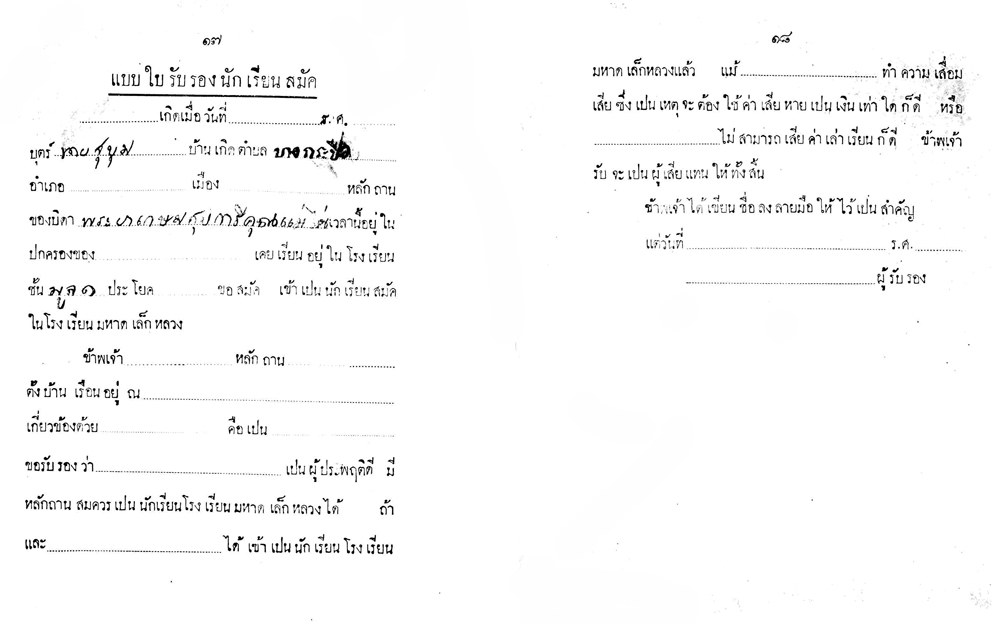 ๑๗
แบบ ใบ รับ รอง นัก เรียน สมัค
....................เกิดเมื่อ วันที่........................ร.ศ.
บุตร์ นายสุนุม บ้าน เกิด ตำบล บางกระบือ
อำเภอ........................เมือง........................หลัก ถาน
ของบิดา เวลานี้อยู่ ใน
ปกครองของ........................เคย เรียน อยู่ ใน โรง เรียน
ชั้น มูล ๑ ประ โยค ............ ขอ สมัค เข้า เปน นัก เรียน สมัค
ในโรง เรียน มหาด เล็ก หลวง
ข้าพเจ้า........................หลัก ถาน........................
ตั้ง บ้าน เรือน อยู่ ณ........................
เกี่ยวข้องด้วย........................คือ เปน........................
ขอรับ รอง ว่า........................เปน ผู้ ประพฤติดี มี
หลักถาน สมควร เปน นักเรียนโรง เรียน มหาด เล็ก หลวง ได้ ถ้า
และ........................ได้ เข้า เปน นัก เรียน โรง เรียน
๑๘
มหาด เล็กหลวงแล้ว แม้........................ทำ ความ เสื่อม
เสีย ซึ่ง เปน เหตุ จะ ต้อง ใช้ ค่า เสีย หาย เปน เงิน เท่า ใด ก็ ดี หรือ
........................ไม่ สามารถ เสีย ค่า เล่า เรียน ก็ ดี ข้าพเจ้า
รับ จะ เปน ผู้ เสีย แทน ให้ ทั้ง สิ้น
ข้าพเจ้า ได้ เขียน ชื่อ ลง ลายมือ ให้ ไว้ เปน สำคัญ
แต่วันที่........................ร.ศ.............
........................ผู้ รับ รอง